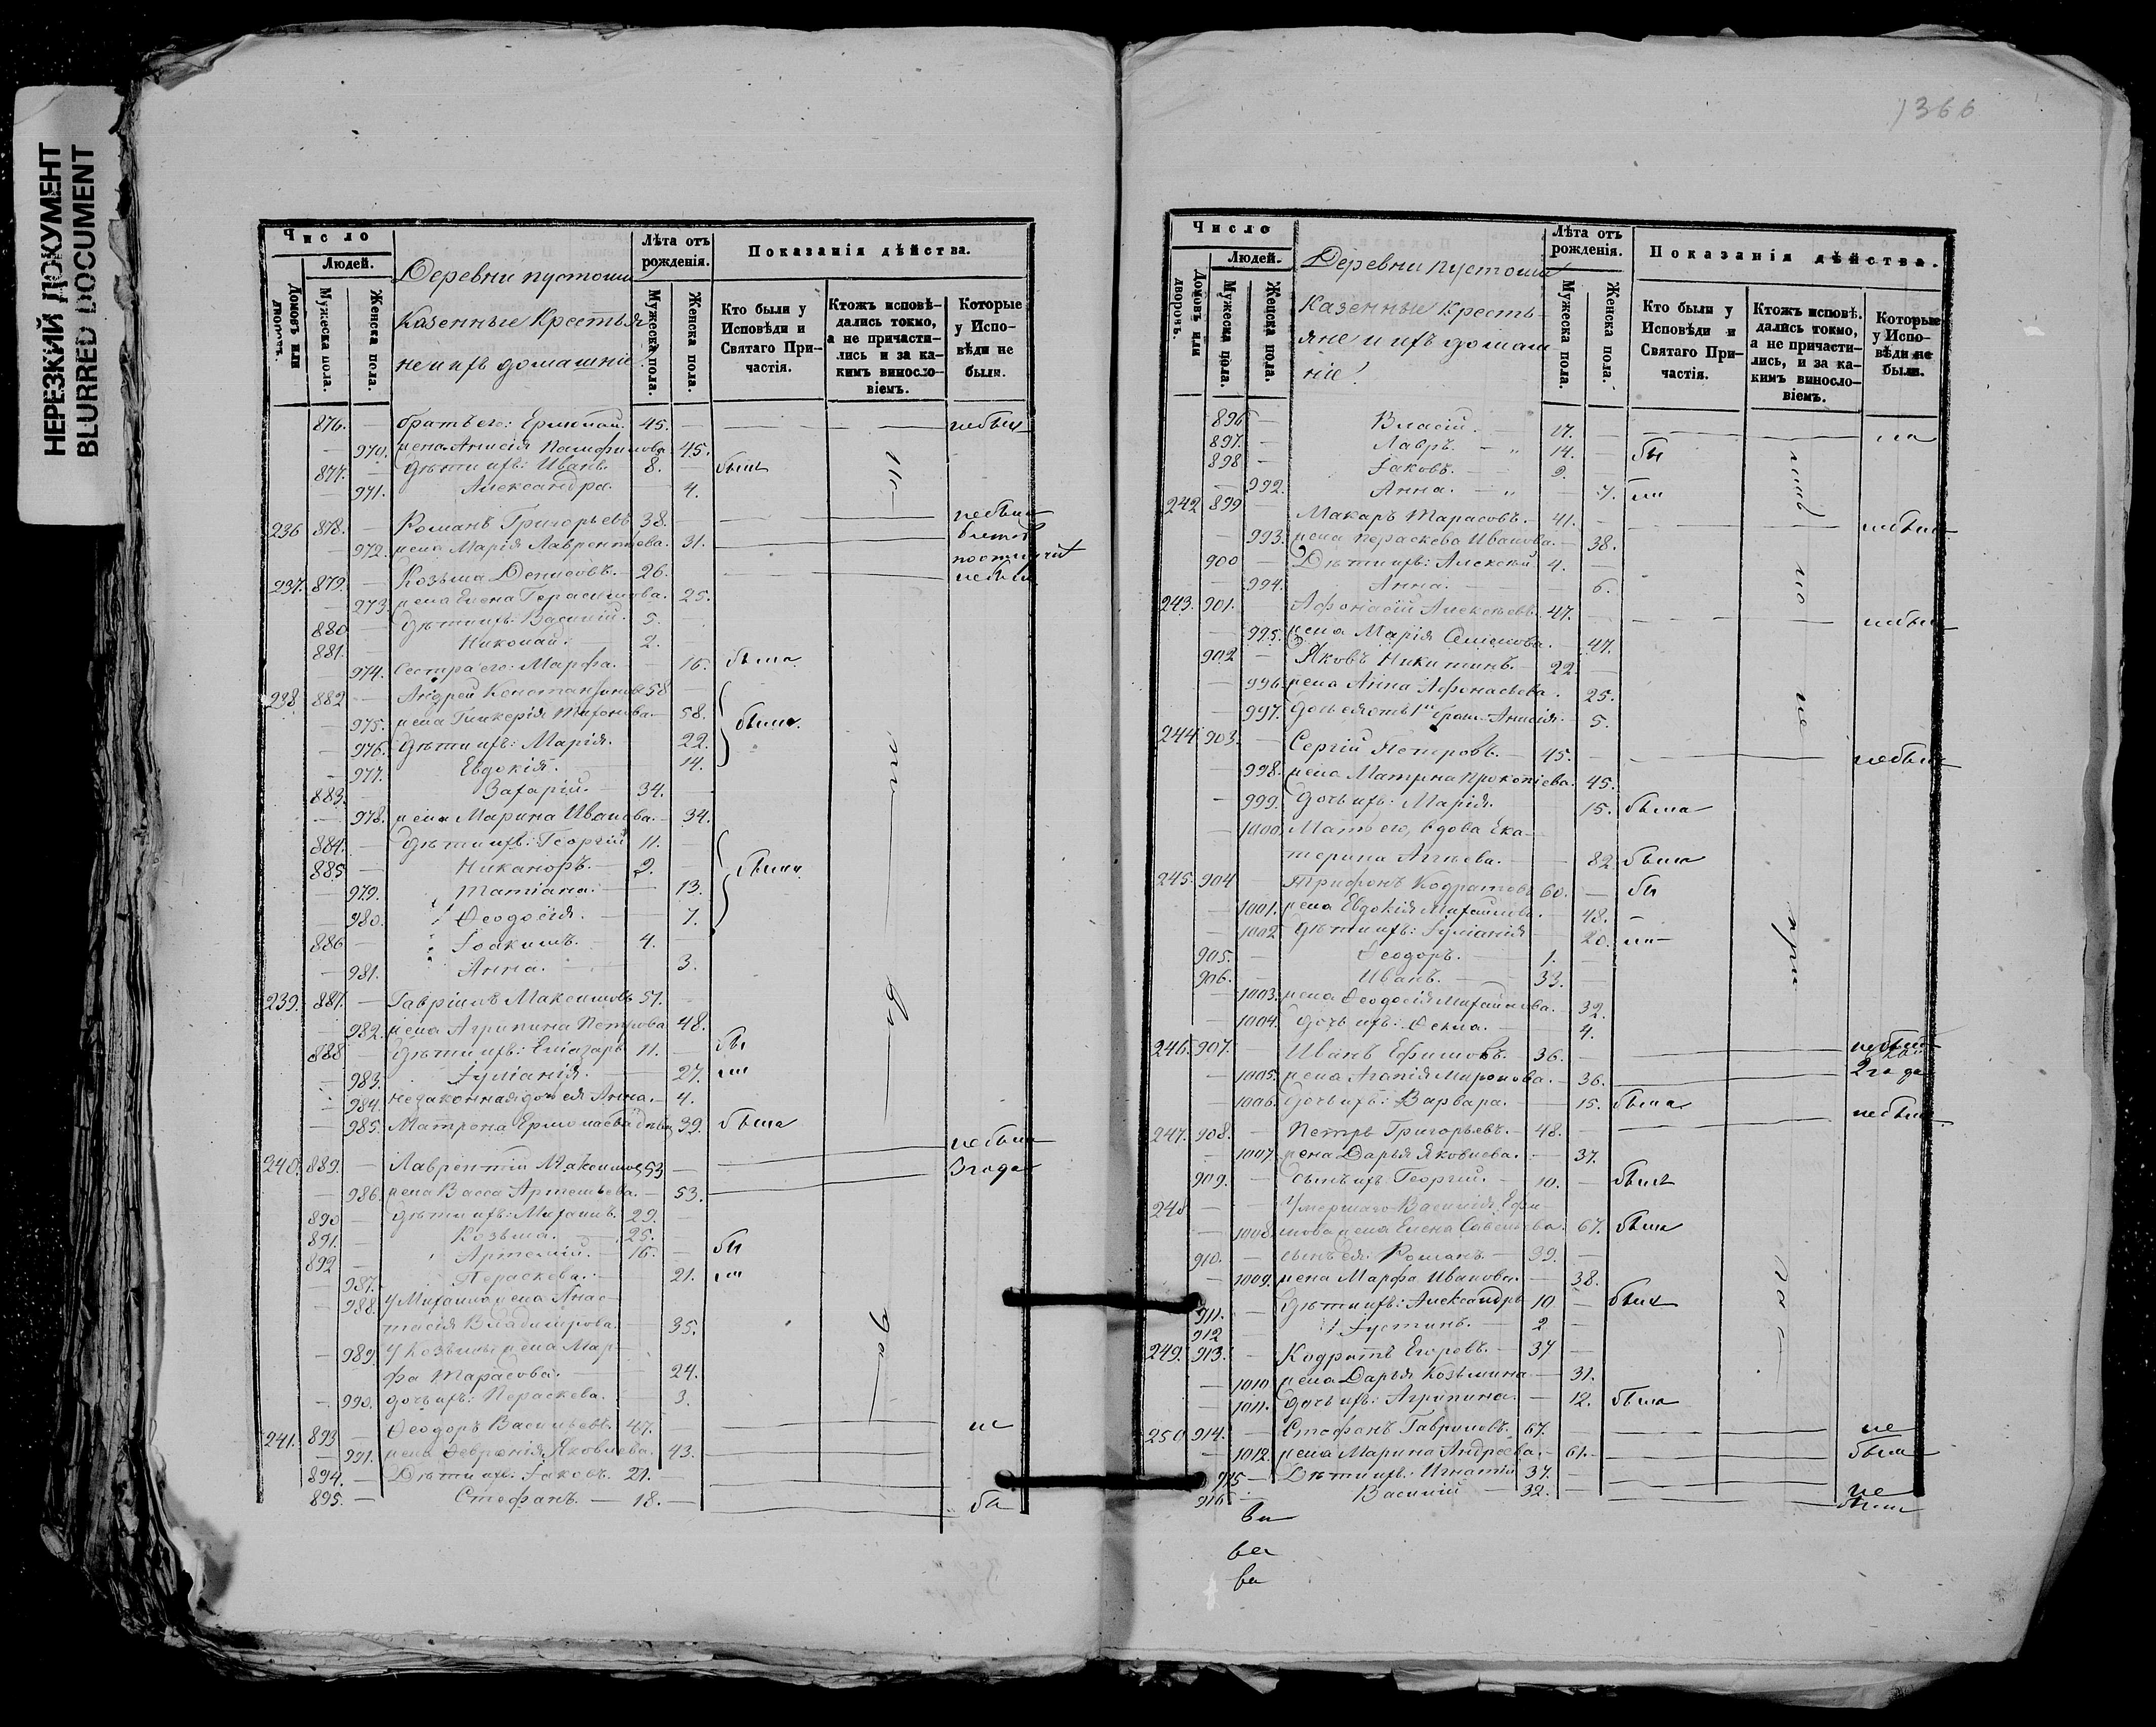 НЕРЕЗКИЙ ДОКУМЕНТ
BLURRED DOCUMENT
Число
Людей.
Домовъ или дворовъ.
Мужеска пола.
Женска пола.
Деревни пустоши
Казенные Крестья
не и ихъ домашніе.
Лѣта отъ рожденія.
Мужеска пола.
Женска пола.
Показанія дѣйства.
Кто были у Исповѣди и Святаго При-частія.
Ктожъ исповѣ-дались токмо, а не причасти-лись и за ка-кимъ винословіемъ.
Которые у Испо-вѣди не были.
876. — братъ его: Ермолай. 45. — небылъ
970. жена Анисія Памфилова. 45.
877. — дѣти ихъ: Иванъ. 8. — былъ
971. Александра. 4.
236 878. — Романъ Григорьевъ 38. — небылъ
972. жена Марія Лаврентьева. 31.
237. 879. — Козьма Денисовъ. 26. — небылъ
273. жена Елена Герасимова. 25.
880 — дѣти ихъ: Василій. 5.
881. — Николай. 2.
974. Сестра его: Марфа. — 16. была
238 882 — Андрей Константиновъ 58 —
975. жена Гликерія Тихонова. — 58. были
976. дѣти ихъ: Марія. 22.
977. Евдокія. 14.
883. Захарій. 34.
978. жена Марина Иванова. — 34.
884. — дѣти ихъ: Георгій 11. —
885 — Никаноръ. 9. были
979. Татіана. — 13.
980. Ѳеодосія. — 7.
886 — Іоакимъ. 4. —
981. Анна. 3.
239. 887. — Гавріилъ Максимовъ 51. —
982. жена Агрипина Петрова 48.
888 — дѣти ихъ: Еліазаръ 11. — бы
983. Іуліанія. 27. ли
984. незаконная дочь ея Анна. — 4.
985. Матрона Ермолаева 39. была
небыли
240. 889. — Лаврентій Максимовъ 53 — 3 года
986. жена Васса Артемьева. — 53.
890 — дѣти ихъ: Михаилъ. 29. —
891. — Козьма. — 25. —
892 — Артемій. — 16. — бы
987. Параскева. 21. ли
988. У Михаила жена Анас-
тасія Владимірова. 35.
989. У Козьмы жена Мар-
фа Тарасова. 24.
990. дочь ихъ: Параскева. 3.
241. 893 — Ѳеодоръ Васильевъ. 47. не
991. жена Февронія Яковлева. 43.
894. — Дѣти ихъ: Іаковъ. 21. —
895. — Стефанъ. — 18. — бы
1366
Число
Людей.
Домовъ или дворовъ.
Мужеска пола.
Женска пола.
Деревни пустоши
Казенные Кресть-
яне и ихъ домаш
ніе.
Лѣта отъ рожденія.
Мужеска пола.
Женска пола.
Показанія дѣйства.
Кто были у Исповѣди и Святаго При-частія.
Ктожъ исповѣ-дались токмо, а не причасти-лись, и за ка-кимъ винословіемъ.
Которые у Испо-вѣди не были.
896 — Власій. — 17. — ли
897. — Лавръ. — 14. — бы
898 — Іаковъ. — 9.
992. Анна. — 7. ли
242 899 — Макаръ Тарасовъ. — 41. — небыли
993. жена Параскева Иванова. — 38.
900 — Дѣти ихъ: Алексѣй 4. —
994. Анна. 6.
243. 901. — Афонасій Алексѣевъ. 47. — небыли
995. жена Марія Семенова. 47.
902 — Яковъ Никитинъ. — 22 —
996. жена Анна Афонасьева. 25.
997. дочь ея отъ 1го брак. Анисія. — 5.
244 903. — Сергій Петровъ. — 45. — небыли
998. жена Матрона Прокопіева. 45.
999. дочь ихъ: Марія. 15. была
1000. Мать его, вдова Ека-
терина 82 была
245. 904 — Трифонъ Кодратовъ 60. — бы
1001. жена Евдокія Михайлова. 48. —
1002 дѣти ихъ: Іуліанія 20. ли
905. — Ѳеодоръ. — 1. —
906. — Иванъ. — 33. —
1003. жена Ѳеодосія Михайлова. 32.
1004. дочь ихъ: Ѳекла. — 4.
246. 907. — Иванъ Ефимовъ. — 36. — небыли
1005. жена Агапія Миронова. — 36. 2 года
1006. дочь ихъ: Варвара. — 15. была
247. 908. — Петръ Григорьевъ. — 48. — небылъ
1007. жена Дарья Яковлева. — 37.
909. — сынъ ихъ Георгій. — 10. — былъ
248 — — Умершаго Василія Ефи-
1008. мова жена Елена Савельева. 67. была
910. — сынъ ея: Романъ. — 39. —
1009. жена Марфа Иванова. — 38.
911. — дѣти ихъ: Александръ 10 — былъ
912 — Іустинъ. — 2 —
249. 913. — Кодратъ Егоровъ. — 37 —
1010 жена Дарья Козьмина — 31.
1011. дочь ихъ: Агрипина. — 12. была
250 914. — Стефанъ Гавриловъ. 67. — не
1012. жена Марина Андреева. — 61. — были
915 — Дѣти ихъ: Игнатій 37. —
916 — Василій — 32. — не
были